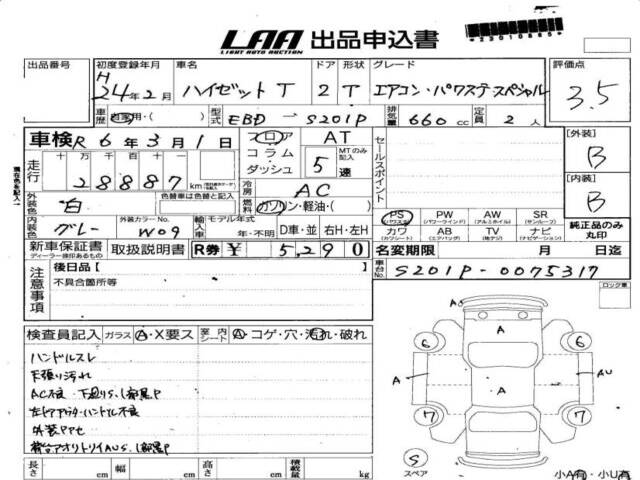 LAA 出品申込書
LIGHT AUTO AUCTION
出品番号
初度登録年月 H 24年2月
車名 ハイゼットT
ドア 2
形状 T
グレード エアコン・パワステ・スペシャル
評価点 3.5
車歴 自家用・( )
型式 EBD - S201P
排気量 660 cc
定員 2人
車検 R 6年3月1日
フロア コラム・ダッシュ
AT
MTのみ記入
5速
セールスポイント
[外装] B
[内装] B
走行 十万千百十 28887 km
冷房 AC
燃料 ガソリン・軽油・( )
外装色 白
色替車は色替と記入
内装色 グレー
外装カラーNo. W09
輸入車
モデル年式 年・不明
D車・並 右H・左H
PS (パワステ)
PW (パワーウインド)
AW (アルミホイル)
SR (サンルーフ)
カワ (カワシート)
AB (エアバッグ)
TV (地デジ)
ナビ (ナビゲーション)
純正品のみ丸印
新車保証書 ディーラー捺印あるもの
取扱説明書
R券 ¥ 5,290
名変期限 月 日迄
車台No. S201P-0075317
注意事項
後日品〔 〕
不具合箇所等
ロック車
検査員記入 ガラス A・X要ス
室内シート A・コゲ・穴・汚れ・破れ
ハンドルスレ
天張り汚れ
外装PPセ
A
A
A
A
AU
6
6
7
7
S
スペア
長さ cm
幅 cm
高さ cm
積載量 kg
小A有・小U有
現在色を記入↑